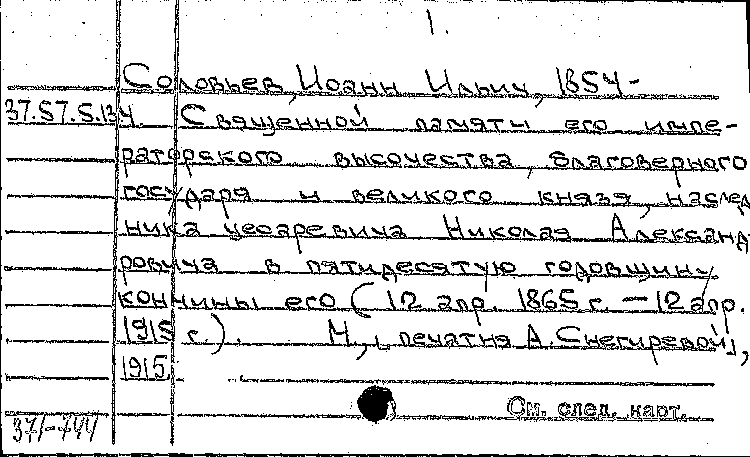 1.
Соловьев, Иоанн Ильич, 1854-
37.57.5.134. Священной памяти его импе-
раторского высочества, благоверного
государя и великого князя, наслед
ника цесаревича Николая Александ
ровича в пятидесятую годовщину
кончины его (12 апр. 1865 г. — 12 апр.
1915 г.). М., печатня А. Снегиревой,
1915.
См. след. карт.
371-744